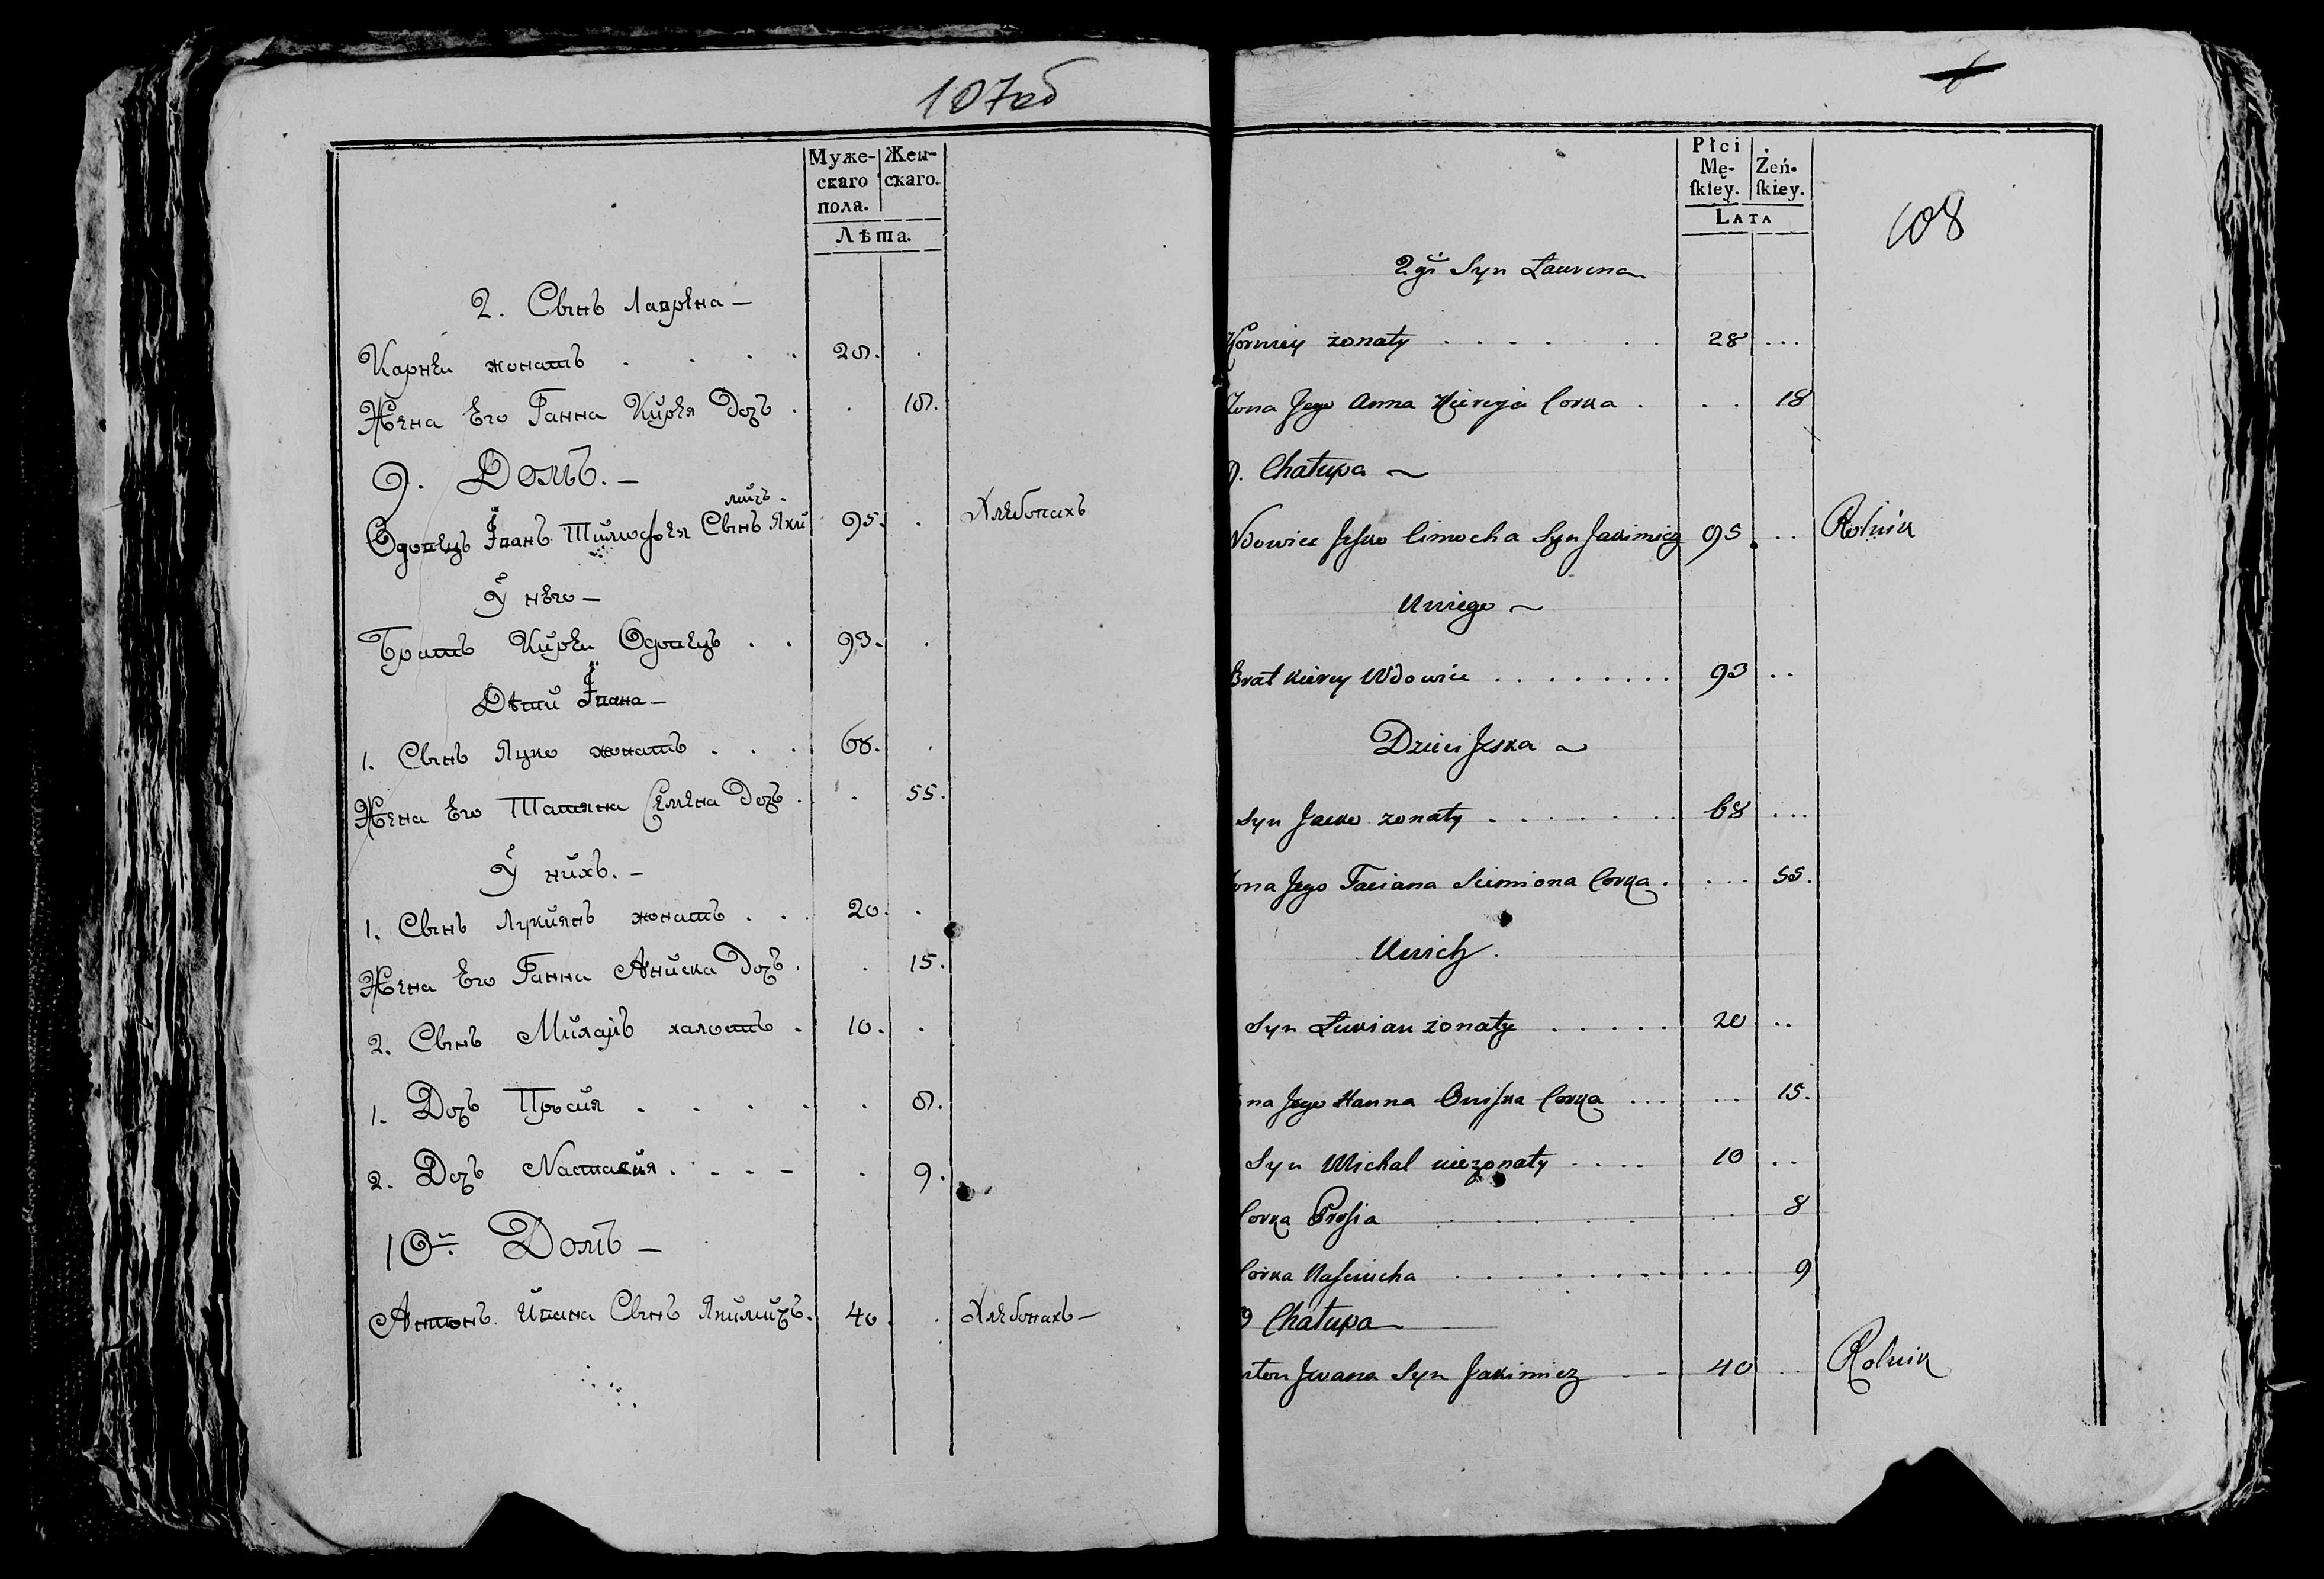 107об
Муже- Жен-
скаго скаго.
пола.
Лѣта.
2. Сынъ Лаврена —
Карней жонатъ . . . . 28. .
Жена Его Ганна Кирея Дочь . . 18.
9. Домъ. —
мичъ.
Вдовецъ Іванъ Тимофея Сынъ Яки 95. . Хлебопахъ
У него —
Братъ Кирей Вдовецъ . . 93. .
Дѣти Івана —
1. Сынъ Яцко жонатъ . . . 68. .
Жена Его Татяна Семена Дочь . . 55.
У нихъ. —
1. Сынъ Лукиянъ жонатъ . . 20. .
Жена Его Ганна Аниска Дочь . . 15.
2. Сынъ Михалъ халостъ . 10. .
1. Дочь Просия . . . . . . 8.
2. Дочь Настасия . . . - . 9.
10й. Домъ —
Антонъ Ивана Сынъ Якимичъ. 40. . Хлебопахъ —
Płci
Mę- Żeń-
ſkiey. ſkiey.
Lata
108
2gi Syn Laurena
Korniey żonaty . . . . . . 28 ...
Zona Jego Anna Kireyia Corka . . . 18
9. Chałupa ~
Wdowiec Jeſko Cimocha Syn Jakimicz 95 .. Rolnik
Uniego ~
Brat Kirey Wdowiec . . . . . . . . 93 ..
Dzieci Jeska ~
Syn Jacko zonaty . . . . . . . 68 ...
ona Jego Taciana Siemiona Corka . ... 55.
Unich .
Syn Łukian żonaty . . . . . 20 ..
na Jego Hanna Oniſka Corka ... .. 15.
Syn Michal niezonaty .... 10 ..
Corka Proſia . . . . . 8
Corka Naſciucha . . . . . . . . . 9
Chałupa
nton Jwana Syn Jakimicz - - 40 .. Rolnik